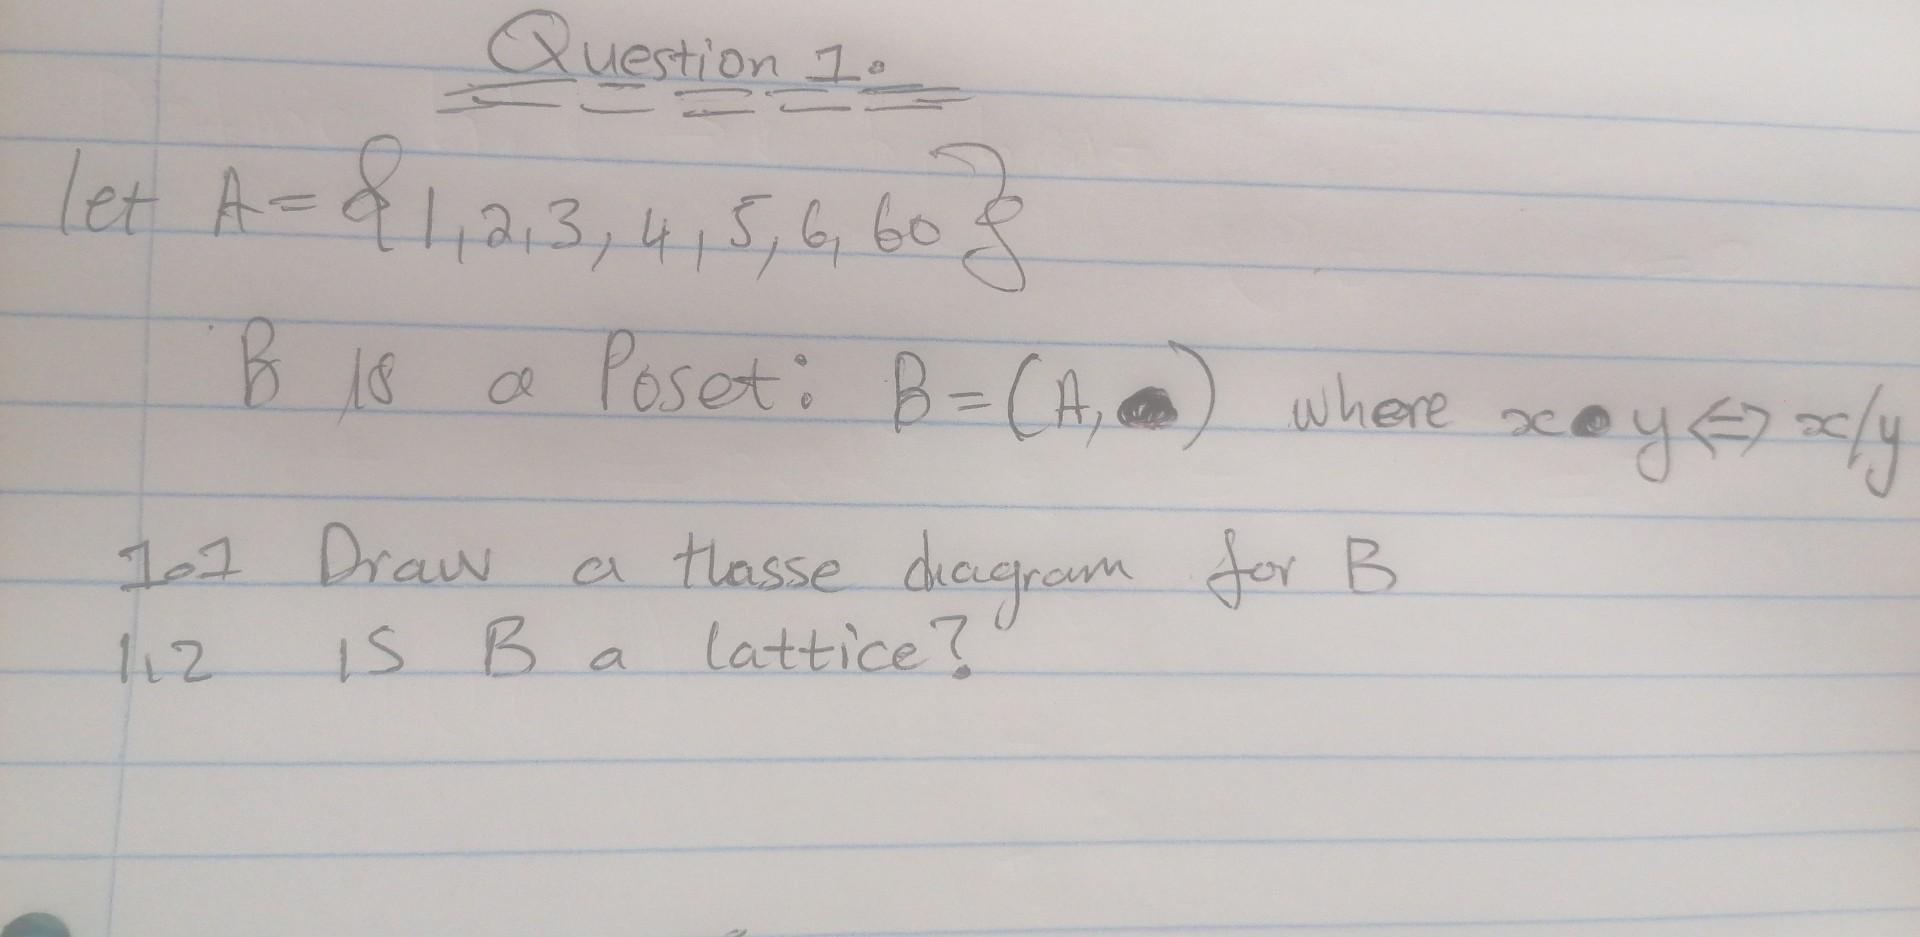 Question 1.
let A = {1, 2, 3, 4, 5, 6, 60}
B is a Poset: B = (A, ●) where x ● y ⇔ x/y
1.1 Draw a Hasse diagram for B
1.2 is B a lattice?